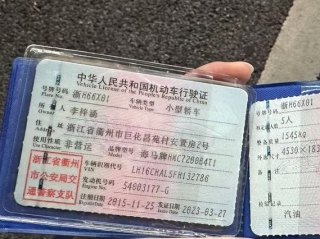 中华人民共和国机动车行驶证
Vehicle License of the People's Republic of China
号牌号码 浙H66X01 车辆类型 小型轿车
Plate No. Vehicle Type
所有人 李梓涵
Owner
住址 浙江省衢州市巨化昌苑村安置房2号
Address
使用性质 非营运 品牌型号 海马牌HKC7200B4T1
Use Character Model
浙江省衢州
市公安局交
通警察支队
车辆识别代号 LH16CHALSFH132786
VIN
发动机号码 S4003177-G
Engine No.
注册日期 2015-11-25 发证日期 2023-03-27
Register Date Issue Date
号牌号码 浙H66X01
5人
整备质量 1545kg
汽油